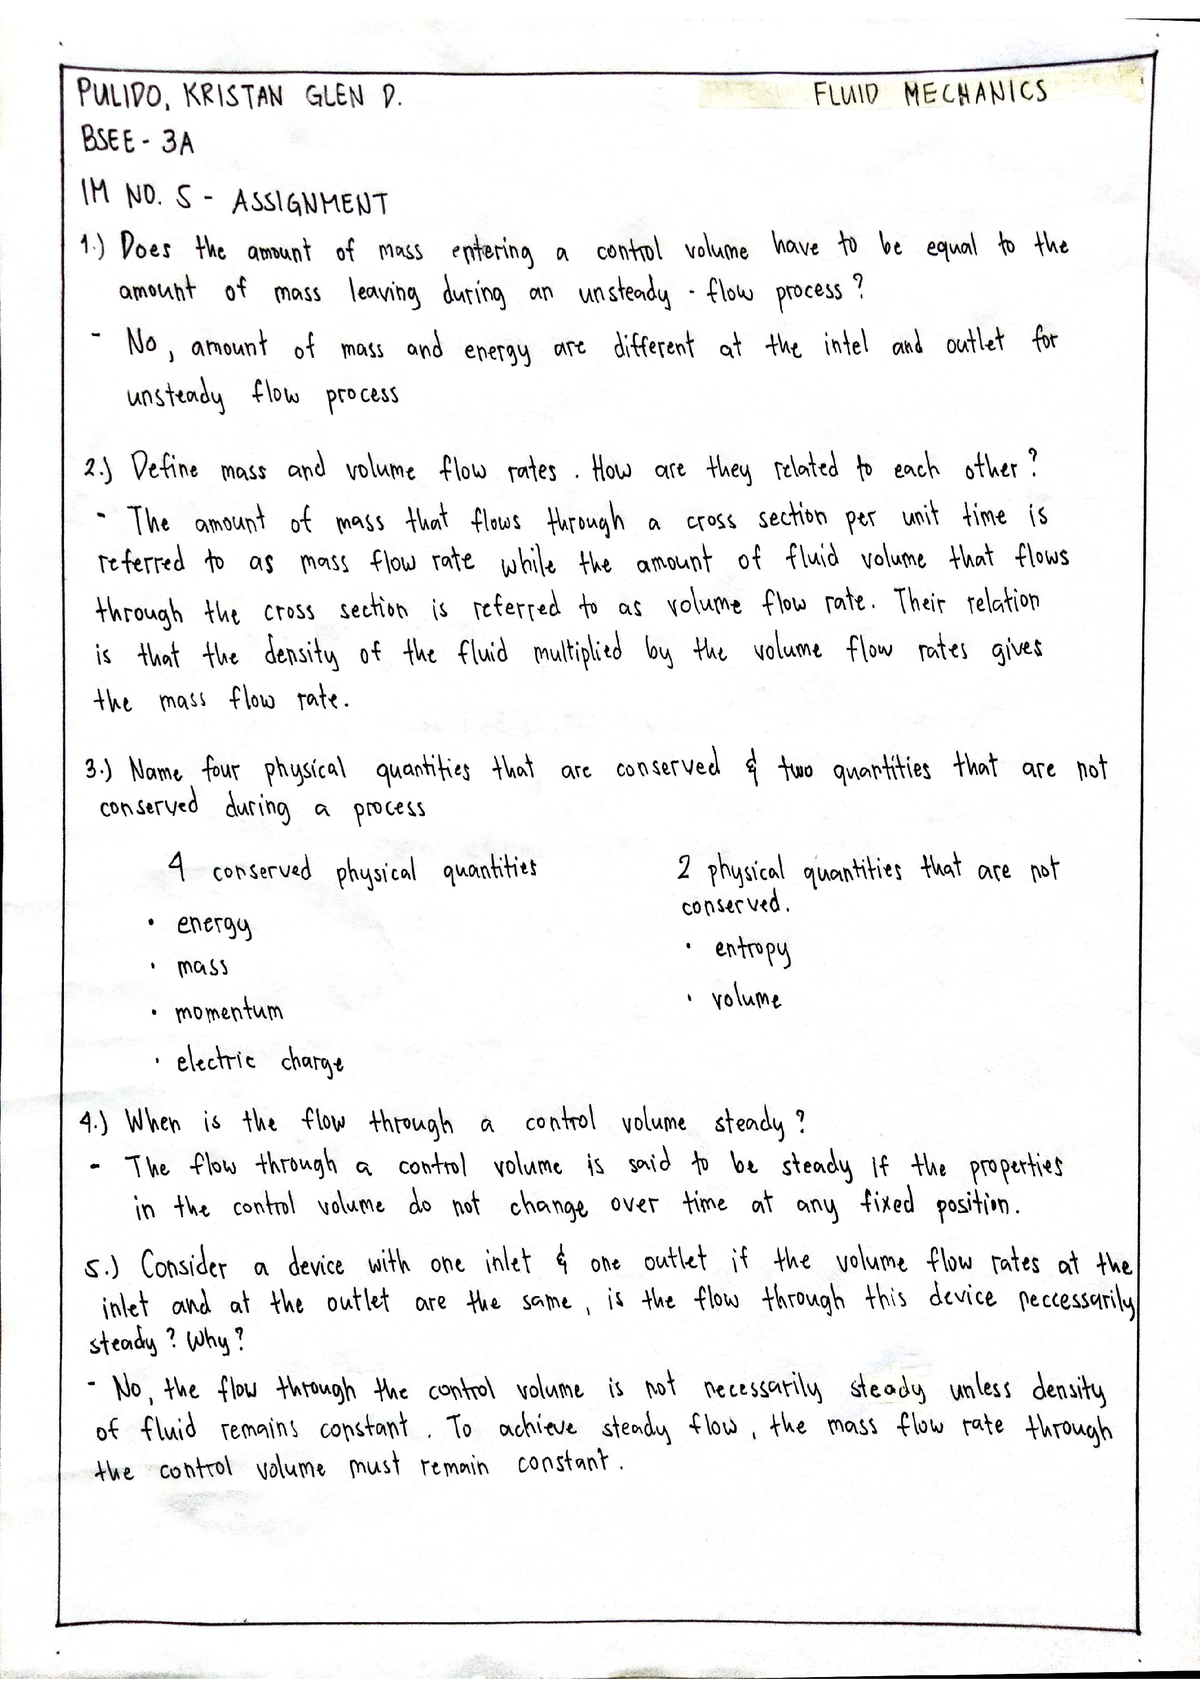 PULIDO, KRISTAN GLEN D. FLUID MECHANICS
BSEE - 3A
IM NO. 5 - ASSIGNMENT
1.) Does the amount of mass entering a control volume have to be equal to the
amount of mass leaving during an unsteady - flow process?
- No, amount of mass and energy are different at the intel and outlet for
unsteady flow process
2.) Define mass and volume flow rates. How are they related to each other?
- The amount of mass that flows through a cross section per unit time is
referred to as mass flow rate while the amount of fluid volume that flows
through the cross section is referred to as volume flow rate. Their relation
is that the density of the fluid multiplied by the volume flow rates gives
the mass flow rate.
3.) Name four physical quantities that are conserved & two quantities that are not
conserved during a process
4 conserved physical quantities
• energy
• mass
• momentum
• electric charge
2 physical quantities that are not
conserved.
• entropy
• volume
4.) When is the flow through a control volume steady?
- The flow through a control volume is said to be steady if the properties
in the control volume do not change over time at any fixed position.
5.) Consider a device with one inlet & one outlet if the volume flow rates at the
inlet and at the outlet are the same, is the flow through this device neccessarily
steady? Why?
- No, the flow through the control volume is not necessarily steady unless density
of fluid remains constant. To achieve steady flow, the mass flow rate through
the control volume must remain constant.